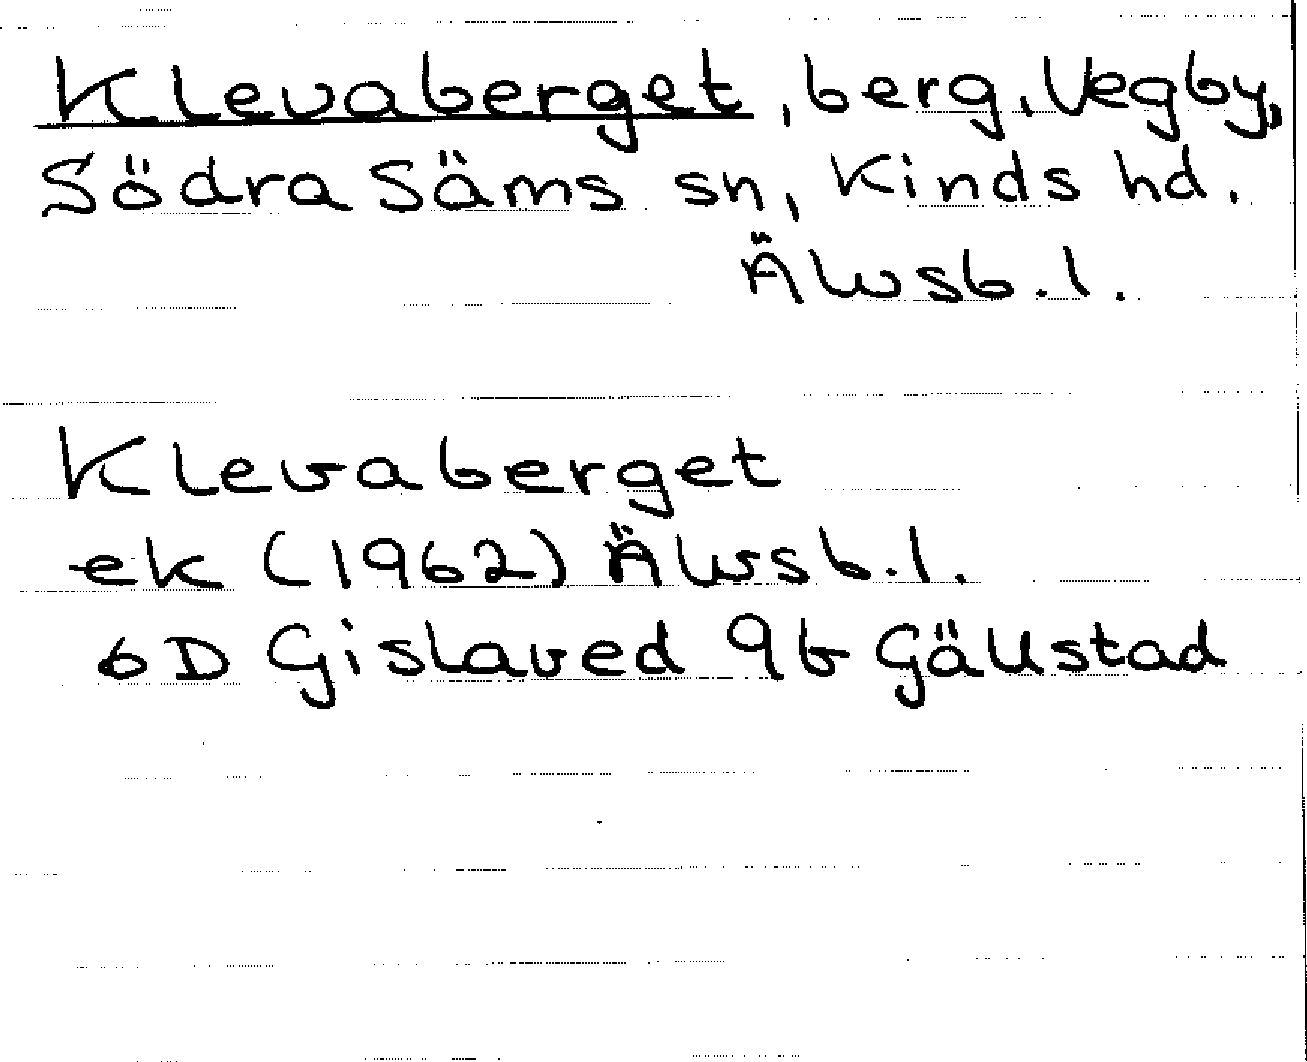 Klevaberget, berg, Vegby,
Södra Säms sn, Kinds hd.
Älvsb.l.
Klevaberget
ek (1962) Älvsb.l.
6D Gislaved 9b Gällstad